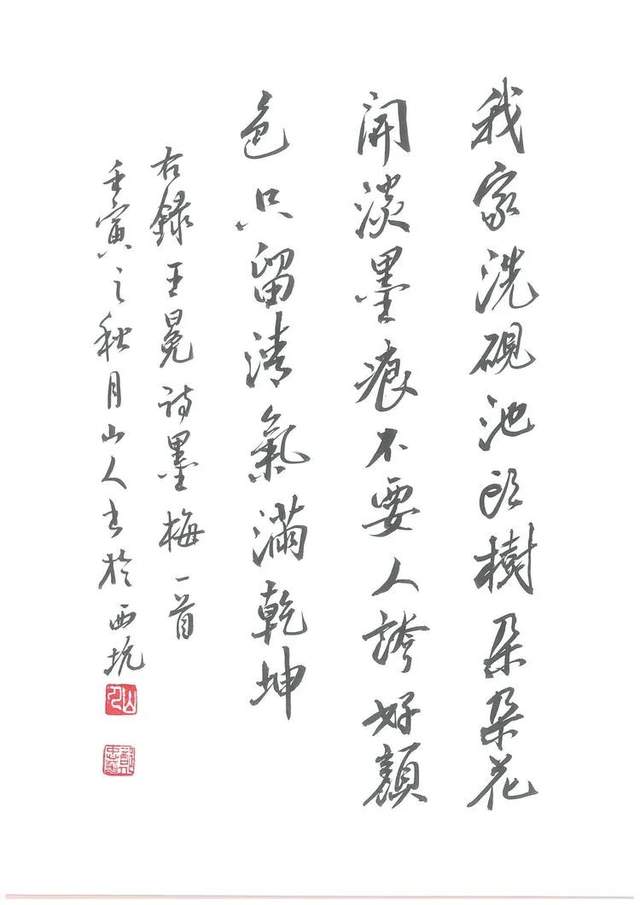 我家洗硯池頭樹朵朵花
開淡墨痕不要人誇好顏
色只留清氣滿乾坤
右錄王冕詩墨梅一首
壬寅之秋月山人書於西坑
山人